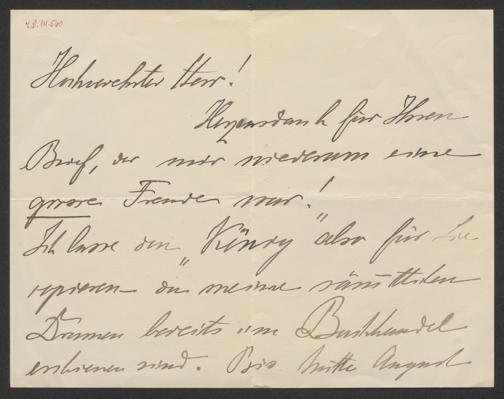 Hochverehrter Herr!
Herzensdank für Ihren
Brief, der mir wiederum eine
grosse Freude war!
Ich lasse den "König" also für Sie
copieren da meine sämtlichen
Dramen bereits im Buchhandel
erschienen sind. Bis Mitte August